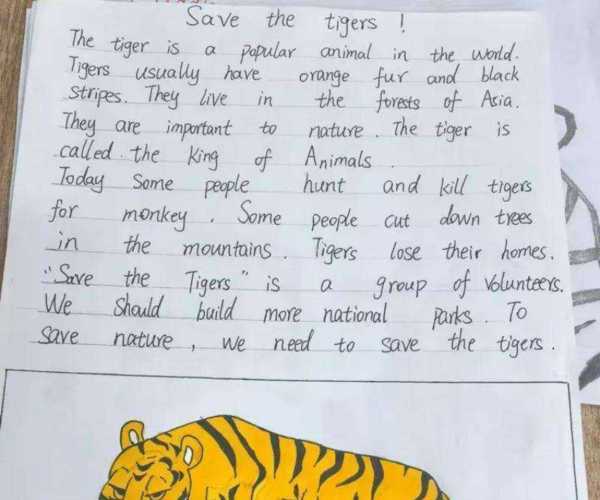 Save the tigers !
The tiger is a popular animal in the world.
Tigers usually have orange fur and black
stripes. They live in the forests of Asia.
They are important to nature. The tiger is
called the King of Animals.
Today Some people hunt and kill tigers
for monkey. Some people cut down trees
in the mountains. Tigers lose their homes.
"Save the Tigers" is a group of Volunteers.
We Should build more national Parks. To
save nature, we need to save the tigers.